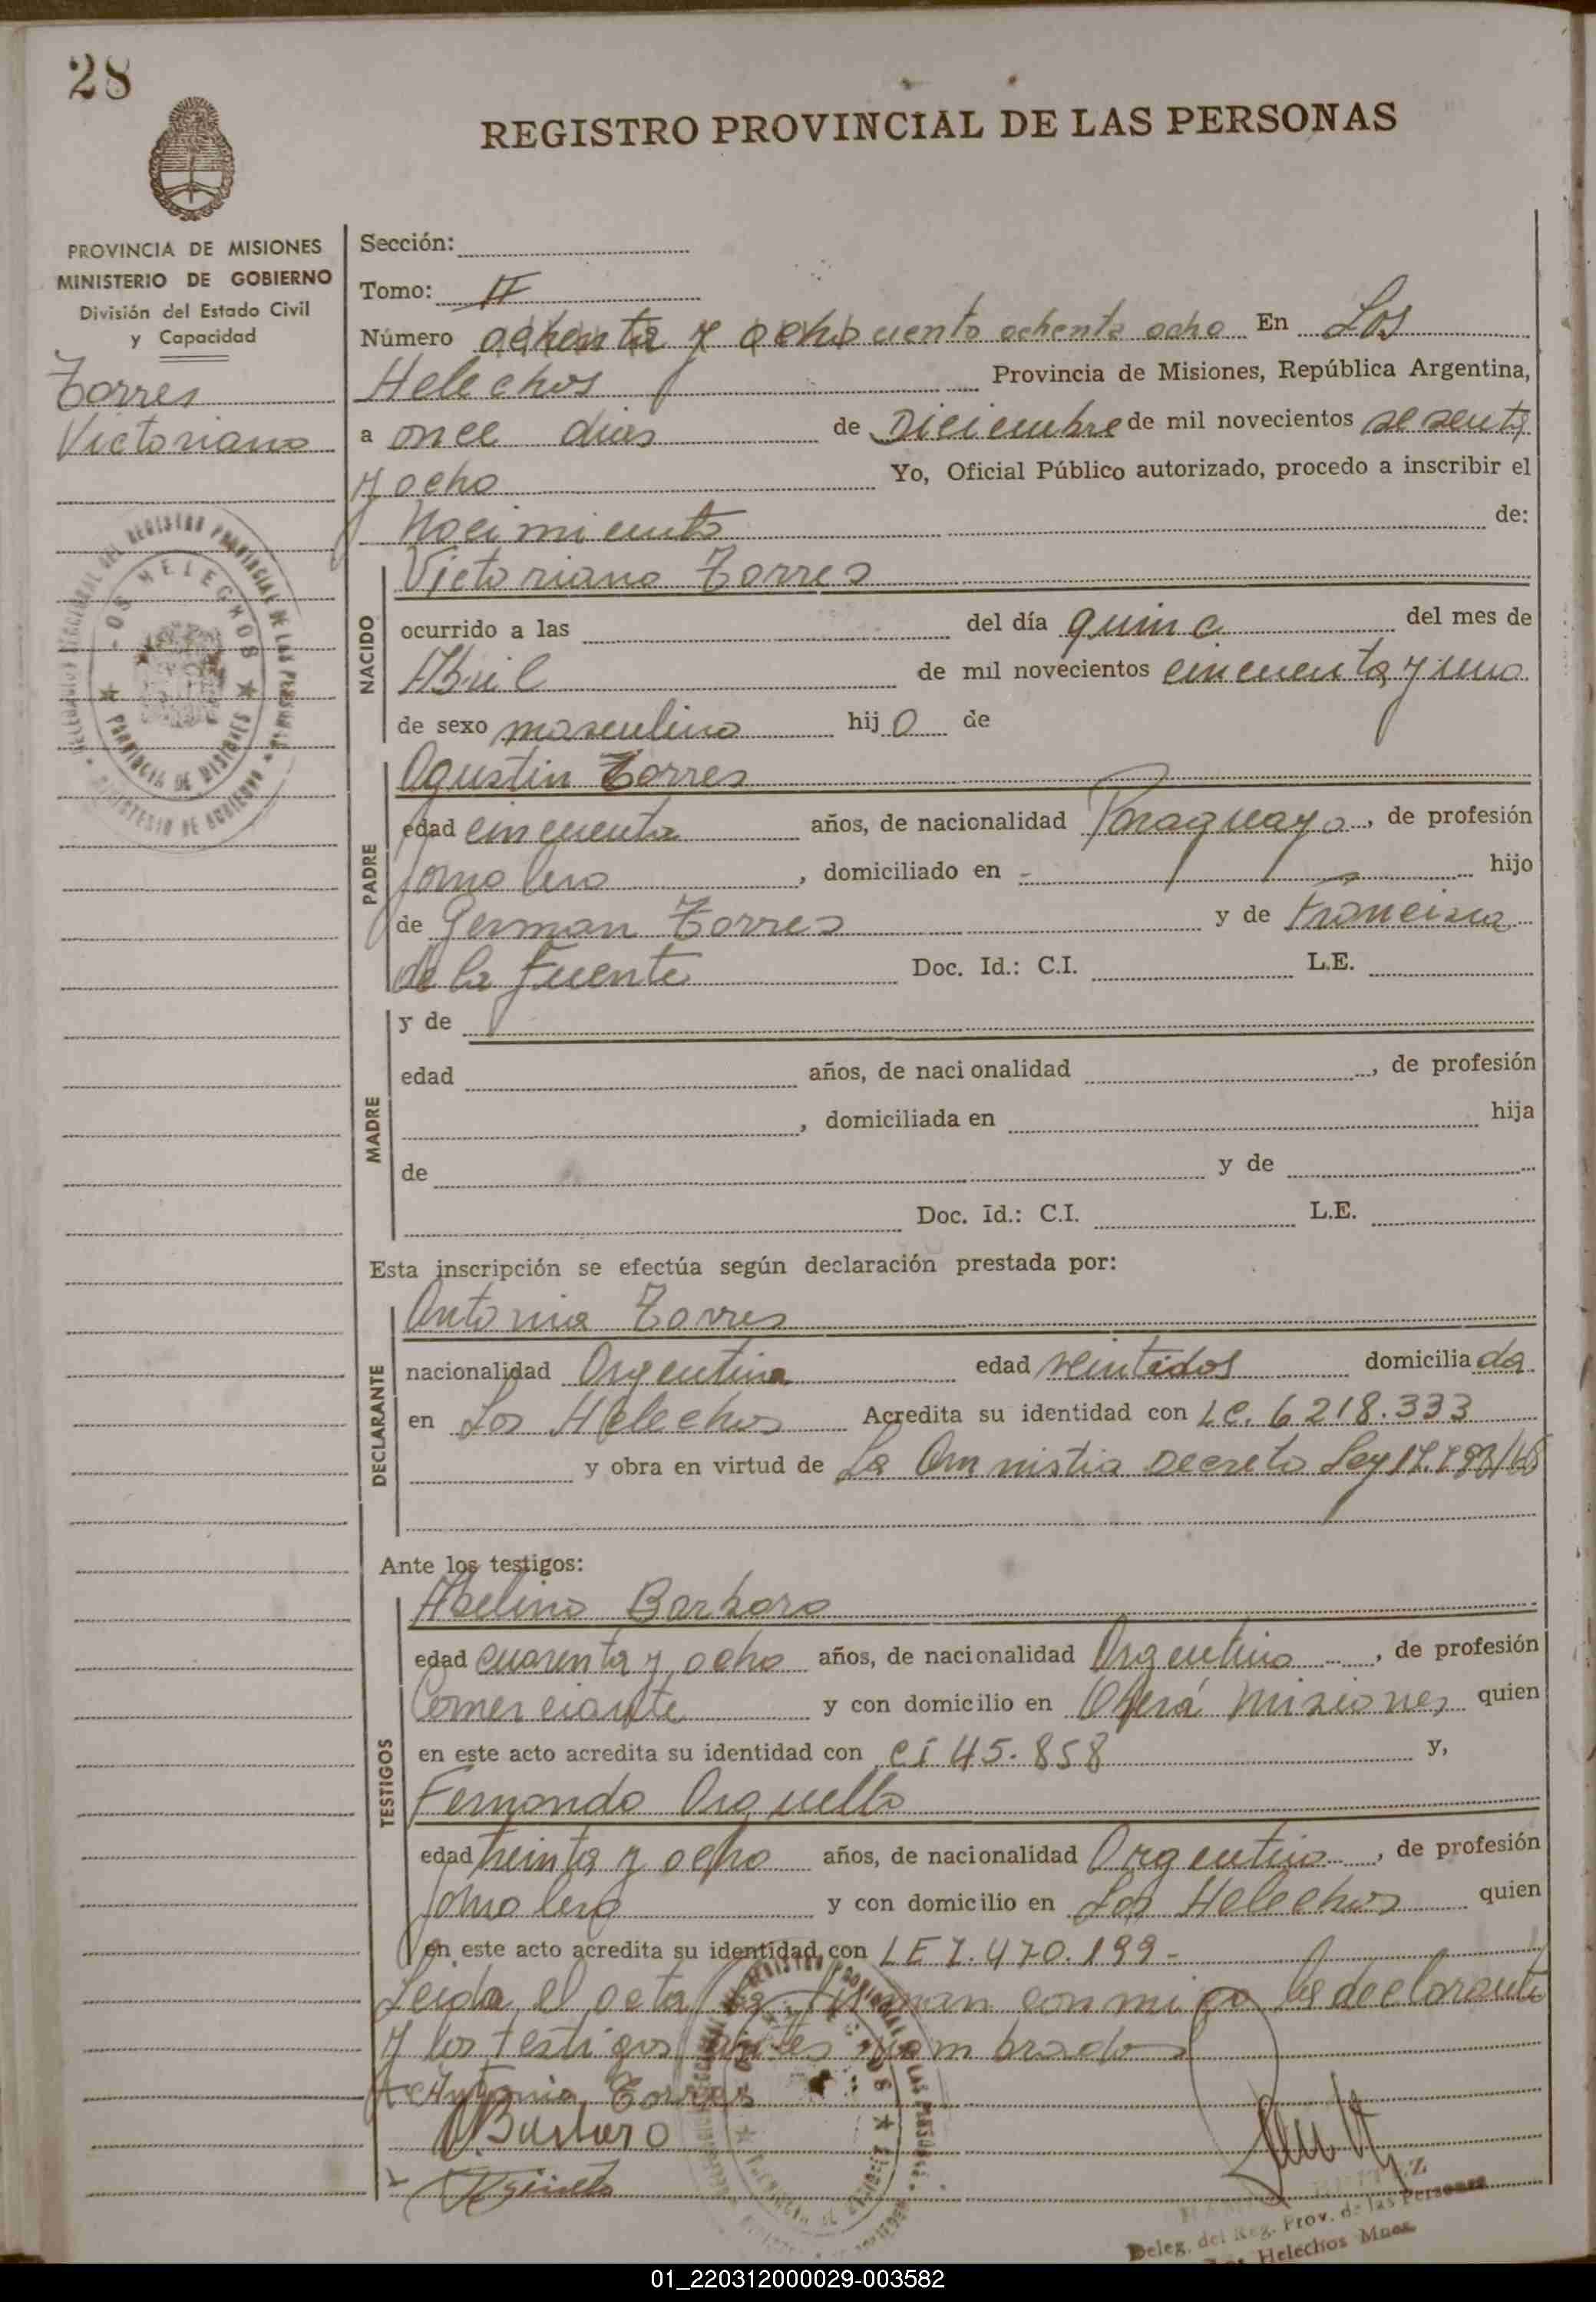 28
REGISTRO PROVINCIAL DE LAS PERSONAS
PROVINCIA DE MISIONES
MINISTERIO DE GOBIERNO
División del Estado Civil
y Capacidad
Torres
Victoriano
Sección:
Tomo: II
Número ochenta y ocho ciento ochenta ocho En Los
Helechos Provincia de Misiones, República Argentina,
a once dias de Diciembre de mil novecientos sesenta
y ocho Yo, Oficial Público autorizado, procedo a inscribir el
Nacimiento de:
NACIDO
Victoriano Torres
ocurrido a las del día quince del mes de
Abril de mil novecientos cincuenta y uno
de sexo masculino hijo de
PADRE
Agustin Torres
edad cincuenta años, de nacionalidad Paraguayo, de profesión
Jornalero, domiciliado en - hijo
de German Torres y de Francisca
de la Fuente Doc. Id.: C.I. L.E.
MADRE
y de
edad años, de nacionalidad , de profesión
, domiciliada en hija
de y de
Doc. Id.: C.I. L.E.
Esta inscripción se efectúa según declaración prestada por:
DECLARANTE
Antonia Torres
nacionalidad Argentina edad veintidos domiciliada
en Los Helechos Acredita su identidad con LC. 6218.333
y obra en virtud de La Amnistia Decreto Ley
Ante los testigos:
TESTIGOS
Abelino Barboro
edad cuarenta y ocho años, de nacionalidad Argentino, de profesión
Comerciante y con domicilio en Oberá Misiones quien
en este acto acredita su identidad con CI 45.858 y,
Fernando Arguello
edad treinta y ocho años, de nacionalidad Argentino, de profesión
Jornalero y con domicilio en Los Helechos quien
en este acto acredita su identidad con LE 7.470.199-
Leida el acta la firman conmigo la declarante
y los testigos antes nombrados
Antonia Torres
Deleg. del Reg. Prov. de las Personas
Los Helechos Mnes.
01_220312000029-003582